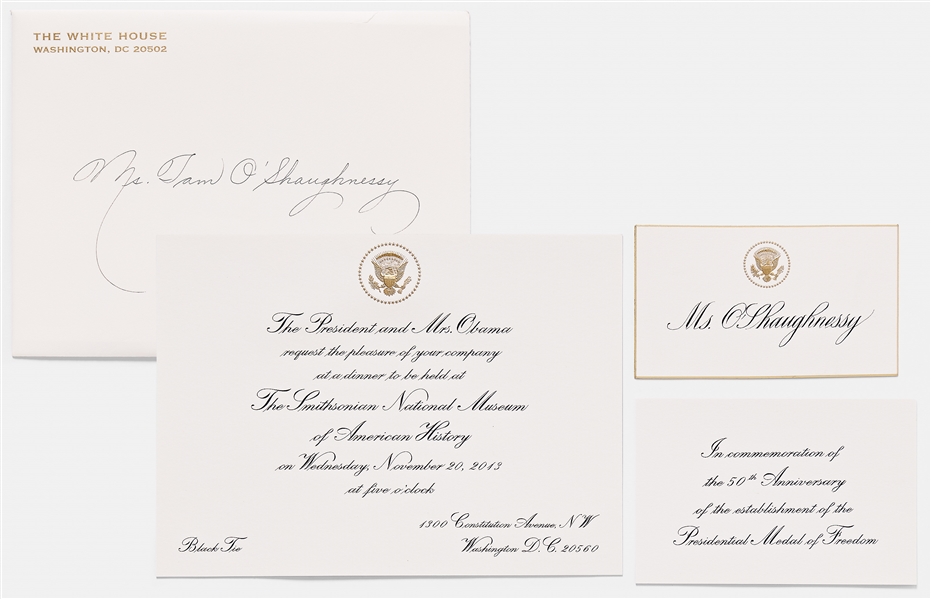 THE WHITE HOUSE
WASHINGTON, DC 20502
Ms. Tam O'Shaughnessy
The President and Mrs. Obama
request the pleasure of your company
at a dinner to be held at
The Smithsonian National Museum
of American History
on Wednesday, November 20, 2013
at five o'clock
1300 Constitution Avenue, NW
Black Tie
Washington D.C. 20560
Ms. O'Shaughnessy
In commemoration of
the 50th Anniversary
of the establishment of the
Presidential Medal of Freedom